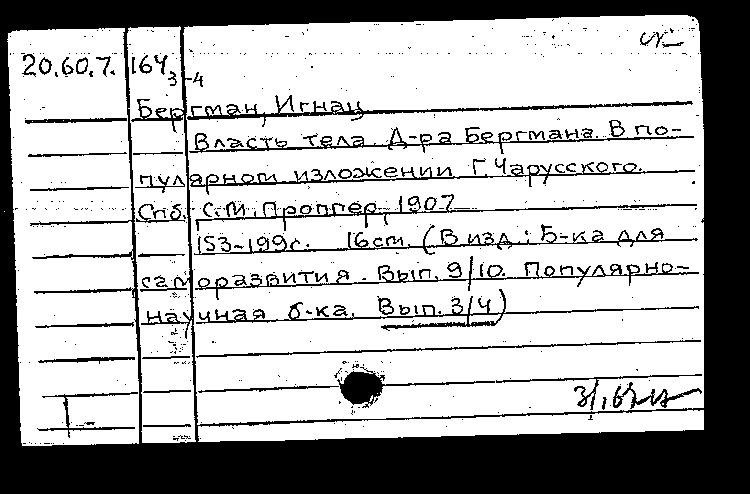 20.60.7. 164 3-4
Бергман, Игнац
Власть тела. Д-ра Бергмана. В по-
пулярном изложении Г. Чарусского.
Спб. С.М. Проппер, 1907
153-199с. 16см. (В изд.: Б-ка для
саморазвития. Вып. 9/10. Популярно-
научная б-ка. Вып. 3/4)